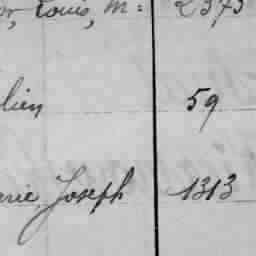 or, Louis, M: 2373
lien 59
arie, Joseph 1313